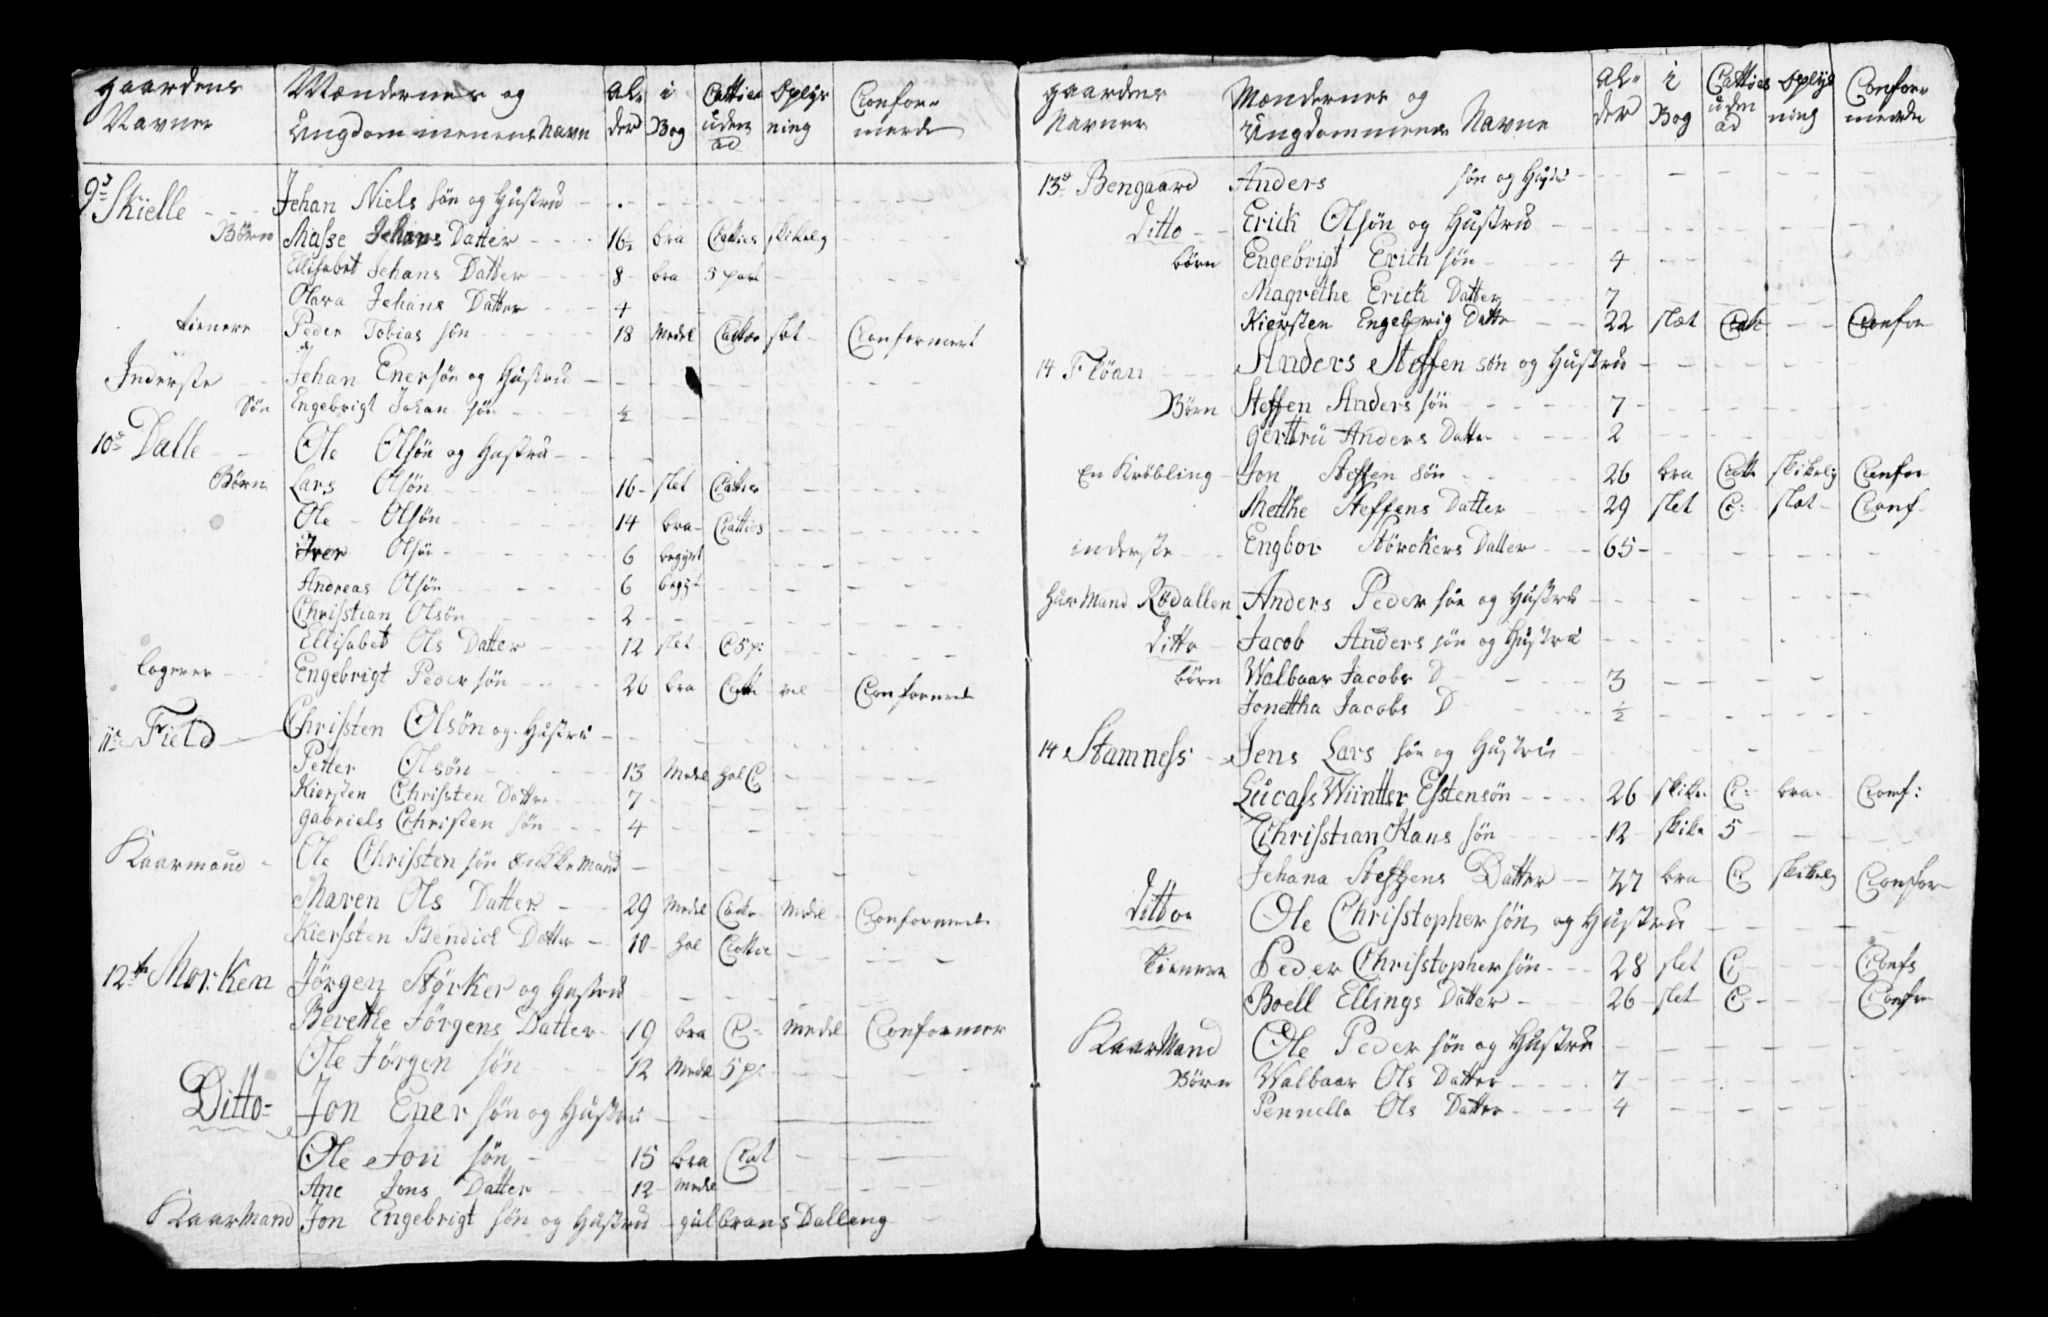 gaardens Mændernes og Al- i Catties Oplys Confor-
Navne Ungdommenens Navn der Bog uden ad ning merede
9de Skielle Jehan Niels søn og Hustru
Børn Masse Jehans Datter 16½ bra Catties skikelg
Ellisabet Jehans Datter 8 bra 5 part
Olava Jehans Datter 4
tienere Peder Tobias søn 18 Medel Catties slet Conformert
Inderste Jehan Enersøn og Hustru
Søn Engebrigt Johan søn ½
10de Dalle Ole Olsøn og Hustru
Børn Lars Olsøn 16 slet Catties
Ole Olsøn 14 bra Catties
Iver Olsøn 6 begynt
Andreas Olsøn 6 begyt
Christian Olsøn 2
Ellisabet Ols Datter 12 slet C 5 p:
logerer Engebrigt Peder søn 26 bra Catti vel Conformered
11te Field Christen Olsøn og Hustru
Petter Olsøn 13 Medel hal C
Kiersten Christen Datter 7
Gabriels Christen søn 4
Kaarmand Ole Christen søn Enkkemand
Maren Ols Datter 29 Medel Catte Medel Conformered
Kiersten Bendick Datter 10 hal Cattie
12te Morken Jørgen Størker og Hustru
Berethe Jørgens Datter 19 bra C Medel Conformer
Ole Jørgen søn 12 Medel 5 p:
Ditto Jon Ener søn og Hustru
Ole Jon søn 15 bra Cat
Ane Jons Datter 12 Medel
Kaarmand Jon Engebrigt søn og Hustru gulbrans Dalleng
gaardens Mændernes og Al- i Catties Oplys Confor-
Navner Ungdommens Navne der Bog uden ad ning merede
13de Bengaard Anders søn og Hustru
ditto Erick Olsøn og Hustru
børn Engebrigt Erich søn 4
Magrethe Erick Datter 7
Kiersten Engebrig Datte 22 slæt Cat Confor
14 Fløan Anders Steffen søn og Hustru
Børn Steffen Anders søn 7
Gerttru Anders Datter 2
En Krøbling Jon Steffen søn 26 bra Catte skikelig Confor
Metthe Steffens Datter 29 slet C: slæt Conf
inderste Engbor Størckers Datter 65
Hus Mand Rødallen Anders Peder søn og Hustru
ditto Jacob Anders søn og Hustru
børn Walbaar Jacobs D 3
Jonettha Jacobs D ½
14 Stamness Jens Lars søn og Hustru
Lucass Wiintter Esstensøn 26 skike C: bra Conf:
Christian Hans søn 12 skike 5
Jehana Steffens Datter 27 bra C skikelg Confor
ditto Ole Christopher søn og Hustru
tienere Peder Christopher søn 28 slet C Confs
Boell Ellings Datter 26 slet C Confr
Kaarmand Ole Peder søn og Hustru
Børn Walbaar Ols Datter 7
Pennella Ols Datter 4